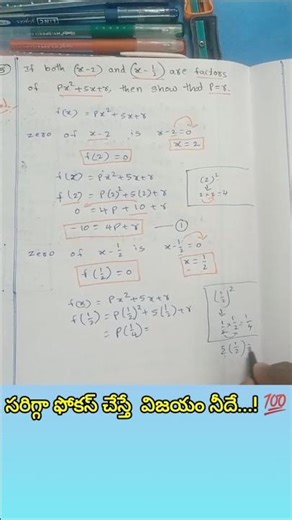 If both (x-2) and (x-1/2) are factors
of px²+5x+r, then show that p=r.
f(x) = px²+5x+r
zero of x-2 is x-2=0
x=2
f(2)=0
f(x) = px²+5x+r
f(2) = p(2)²+5(2)+r
0 = 4p+10+r
-10 = 4p+r —— ①
(2)²
2×2=4
zero of x-1/2 is x-1/2=0
x=1/2
f(1/2)=0
f(x) = px²+5x+r
f(1/2) = p(1/2)²+5(1/2)+r
= p(1/4)=
(1/2)²
1/2×1/2=1/4
5(1/2)=
సరిగ్గా ఫోకస్ చేస్తే విజయం నీదే...! 💯